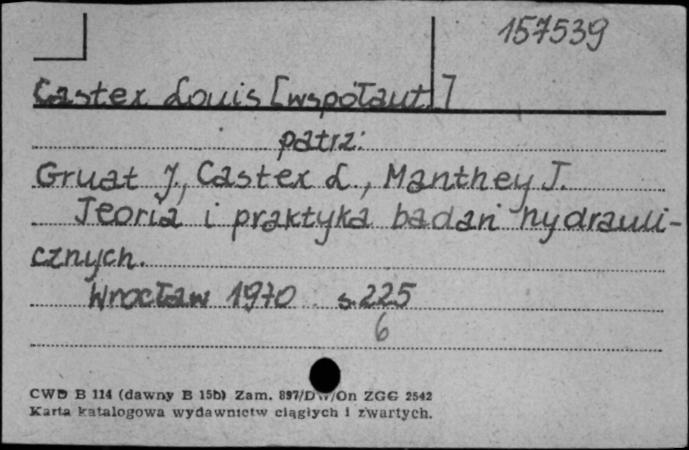 157539
Castex Louis [wspołaut.]
patrz:
Gruat J., Castex L., Manthey J.
Teoria i praktyka badań hydrauli-
cznych.
Wrocław 1970 s. 225
6
CWD B 114 (dawny B 15b) Zam. 897/DW/On ZGG 2542
Karta katalogowa wydawnictw ciągłych i zwartych.